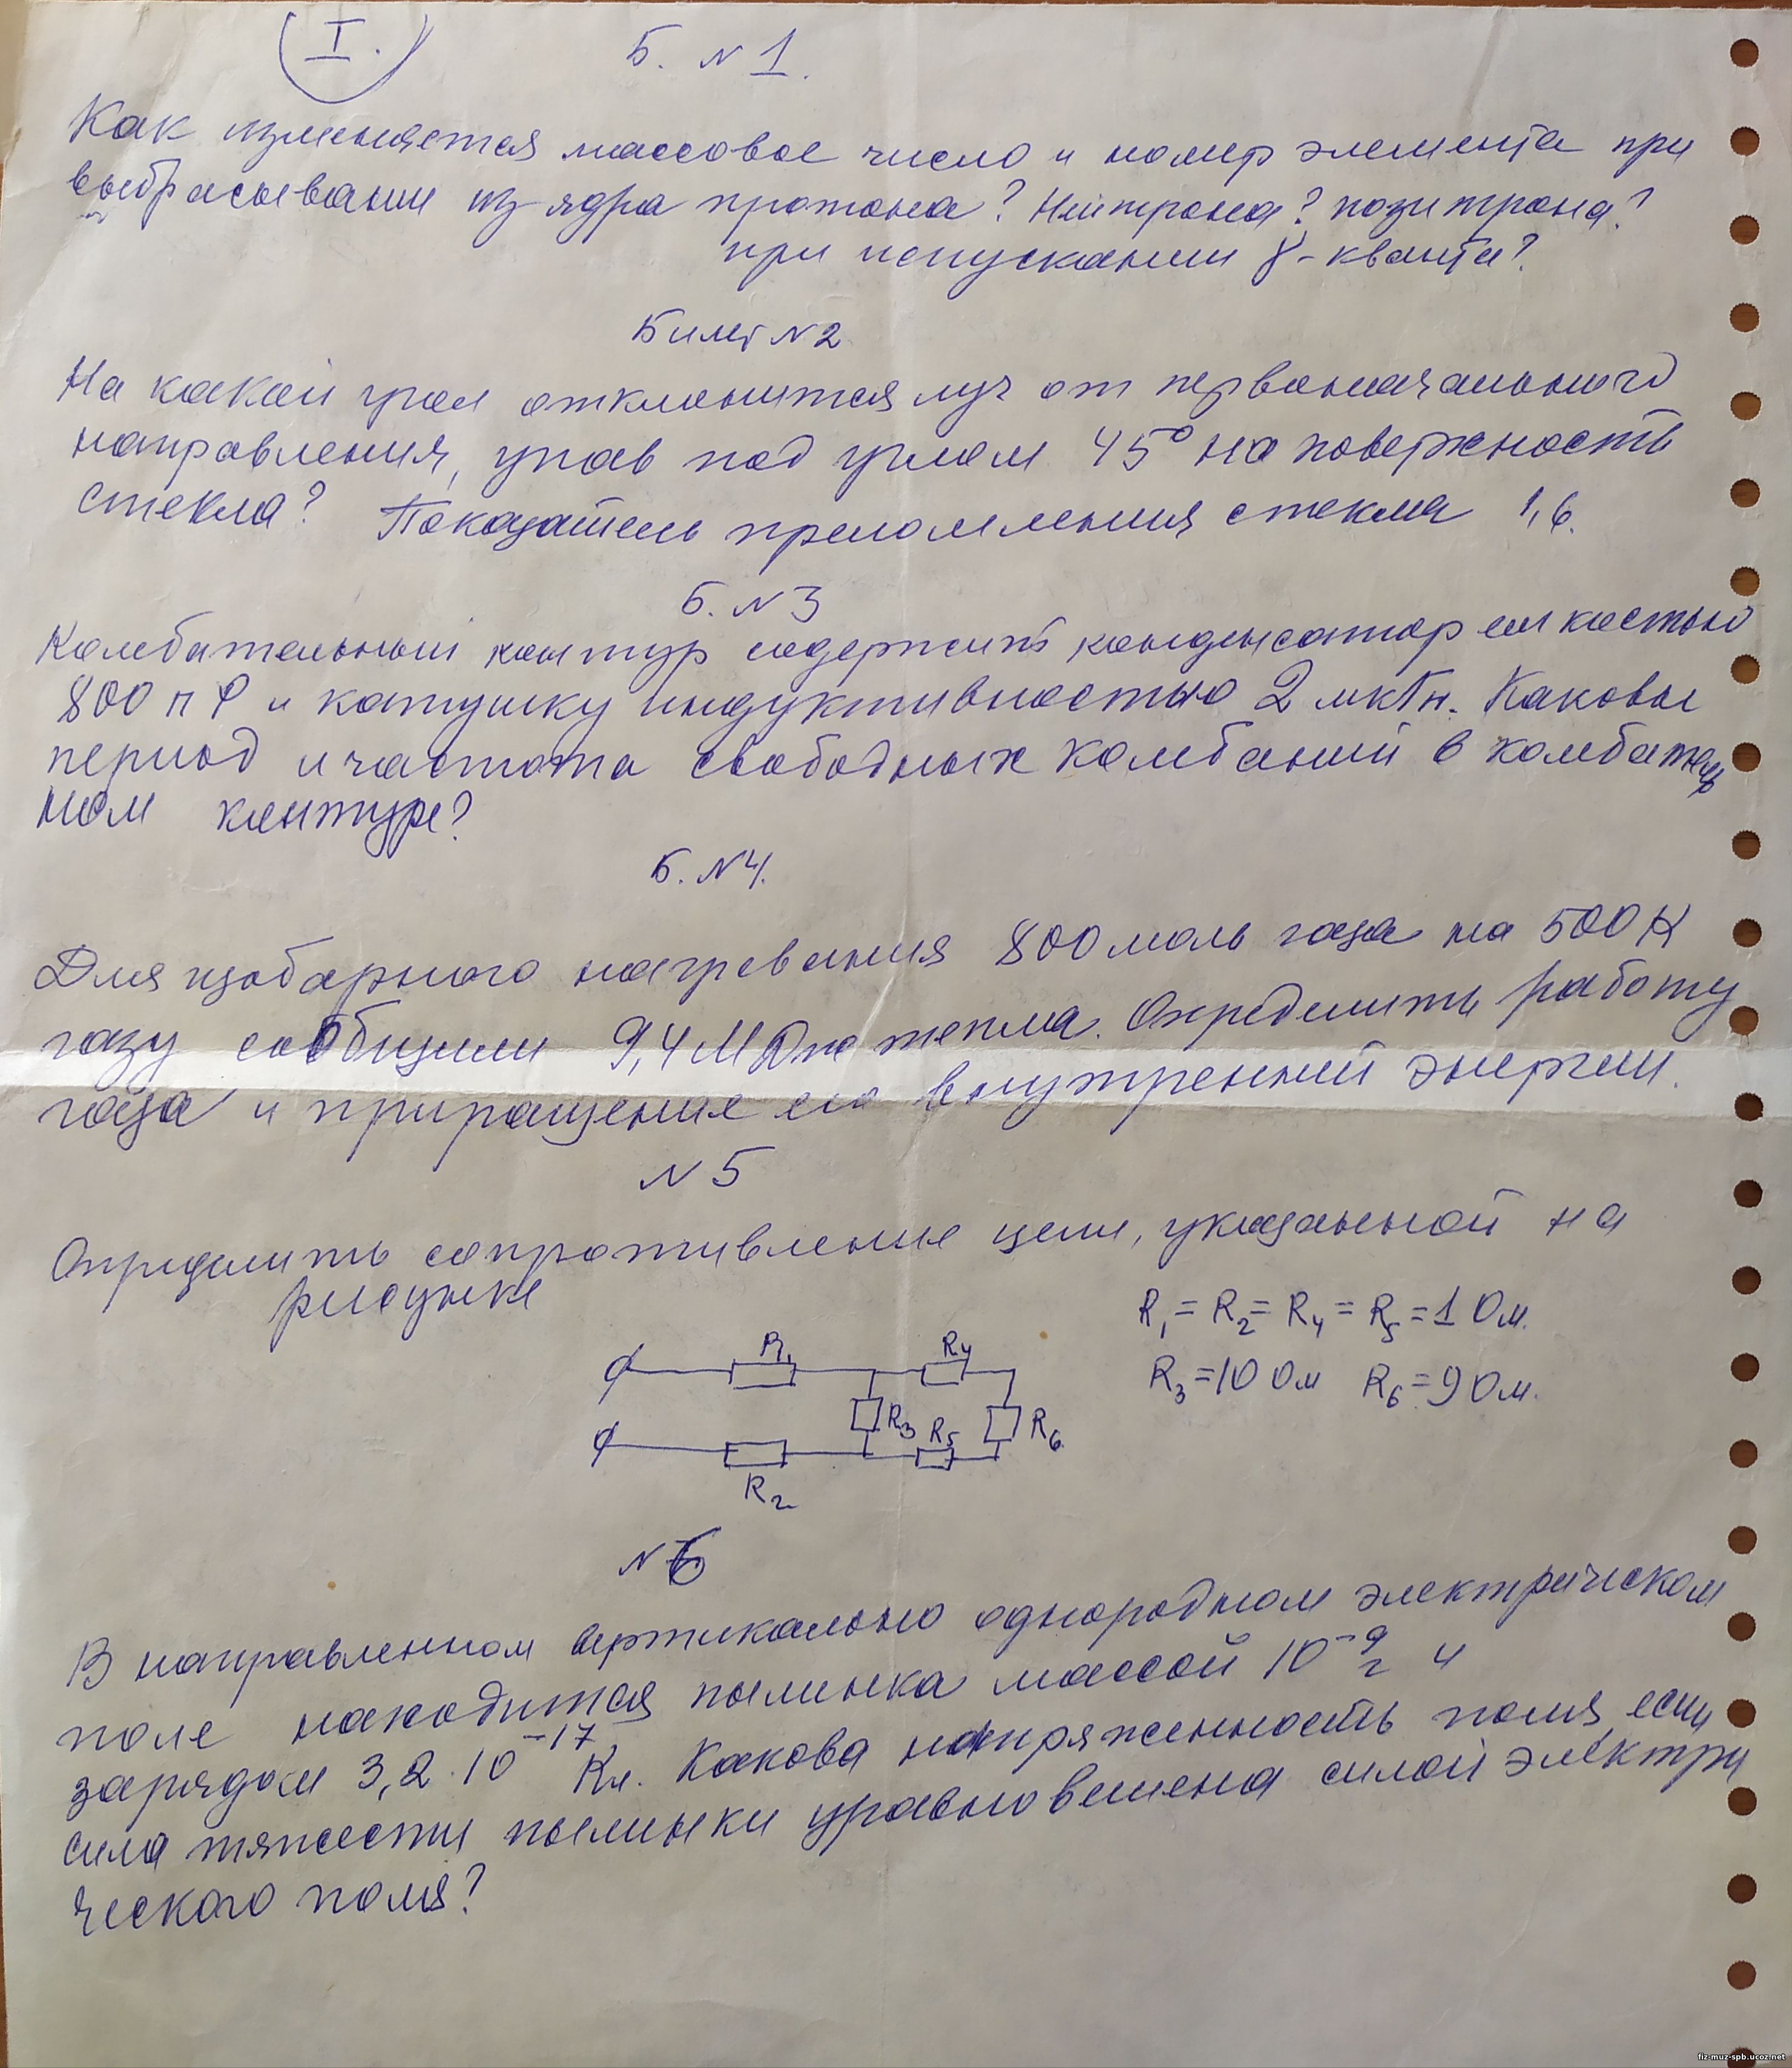 I.
Б. N 1.
Как изменяется массовое число и номер элемента при
выбрасывании из ядра протона? Нейтрона? позитрона?
при испускании γ-кванта?
Билет N 2
На какой угол отклонится луч от первоначального
направления, упав под углом 45° на поверхность
стекла? Показатель преломления стекла 1,6.
Б. N 3
Колебательный контур содержит конденсатор емкостью
800 пФ и катушку индуктивностью 2 мкГн. Каковы
период и частота свободных колебаний в колебатель
ном контуре?
Б. N 4.
Для изобарного нагревания 800 моль газа на 500 К
газу сообщили 9,4 МДж тепла. Определить работу
газа и приращение его внутренней энергии.
N 5
Определить сопротивление цепи, указанной на
рисунке
R₁ = R₂ = R₄ = R₅ = 1 Ом.
R₃ = 10 Ом R₆ = 9 Ом.
R₁ R₄
R₃ R₅ R₆
R₂
N 6
В направленном вертикально однородном электрическом
поле находится пылинка массой 10⁻⁹ г и
зарядом 3,2 · 10⁻¹⁷ Кл. Какова напряженность поля, если
сила тяжести пылинки уравновешена силой электри
ческого поля?
fiz-muz-spb.ucoz.net